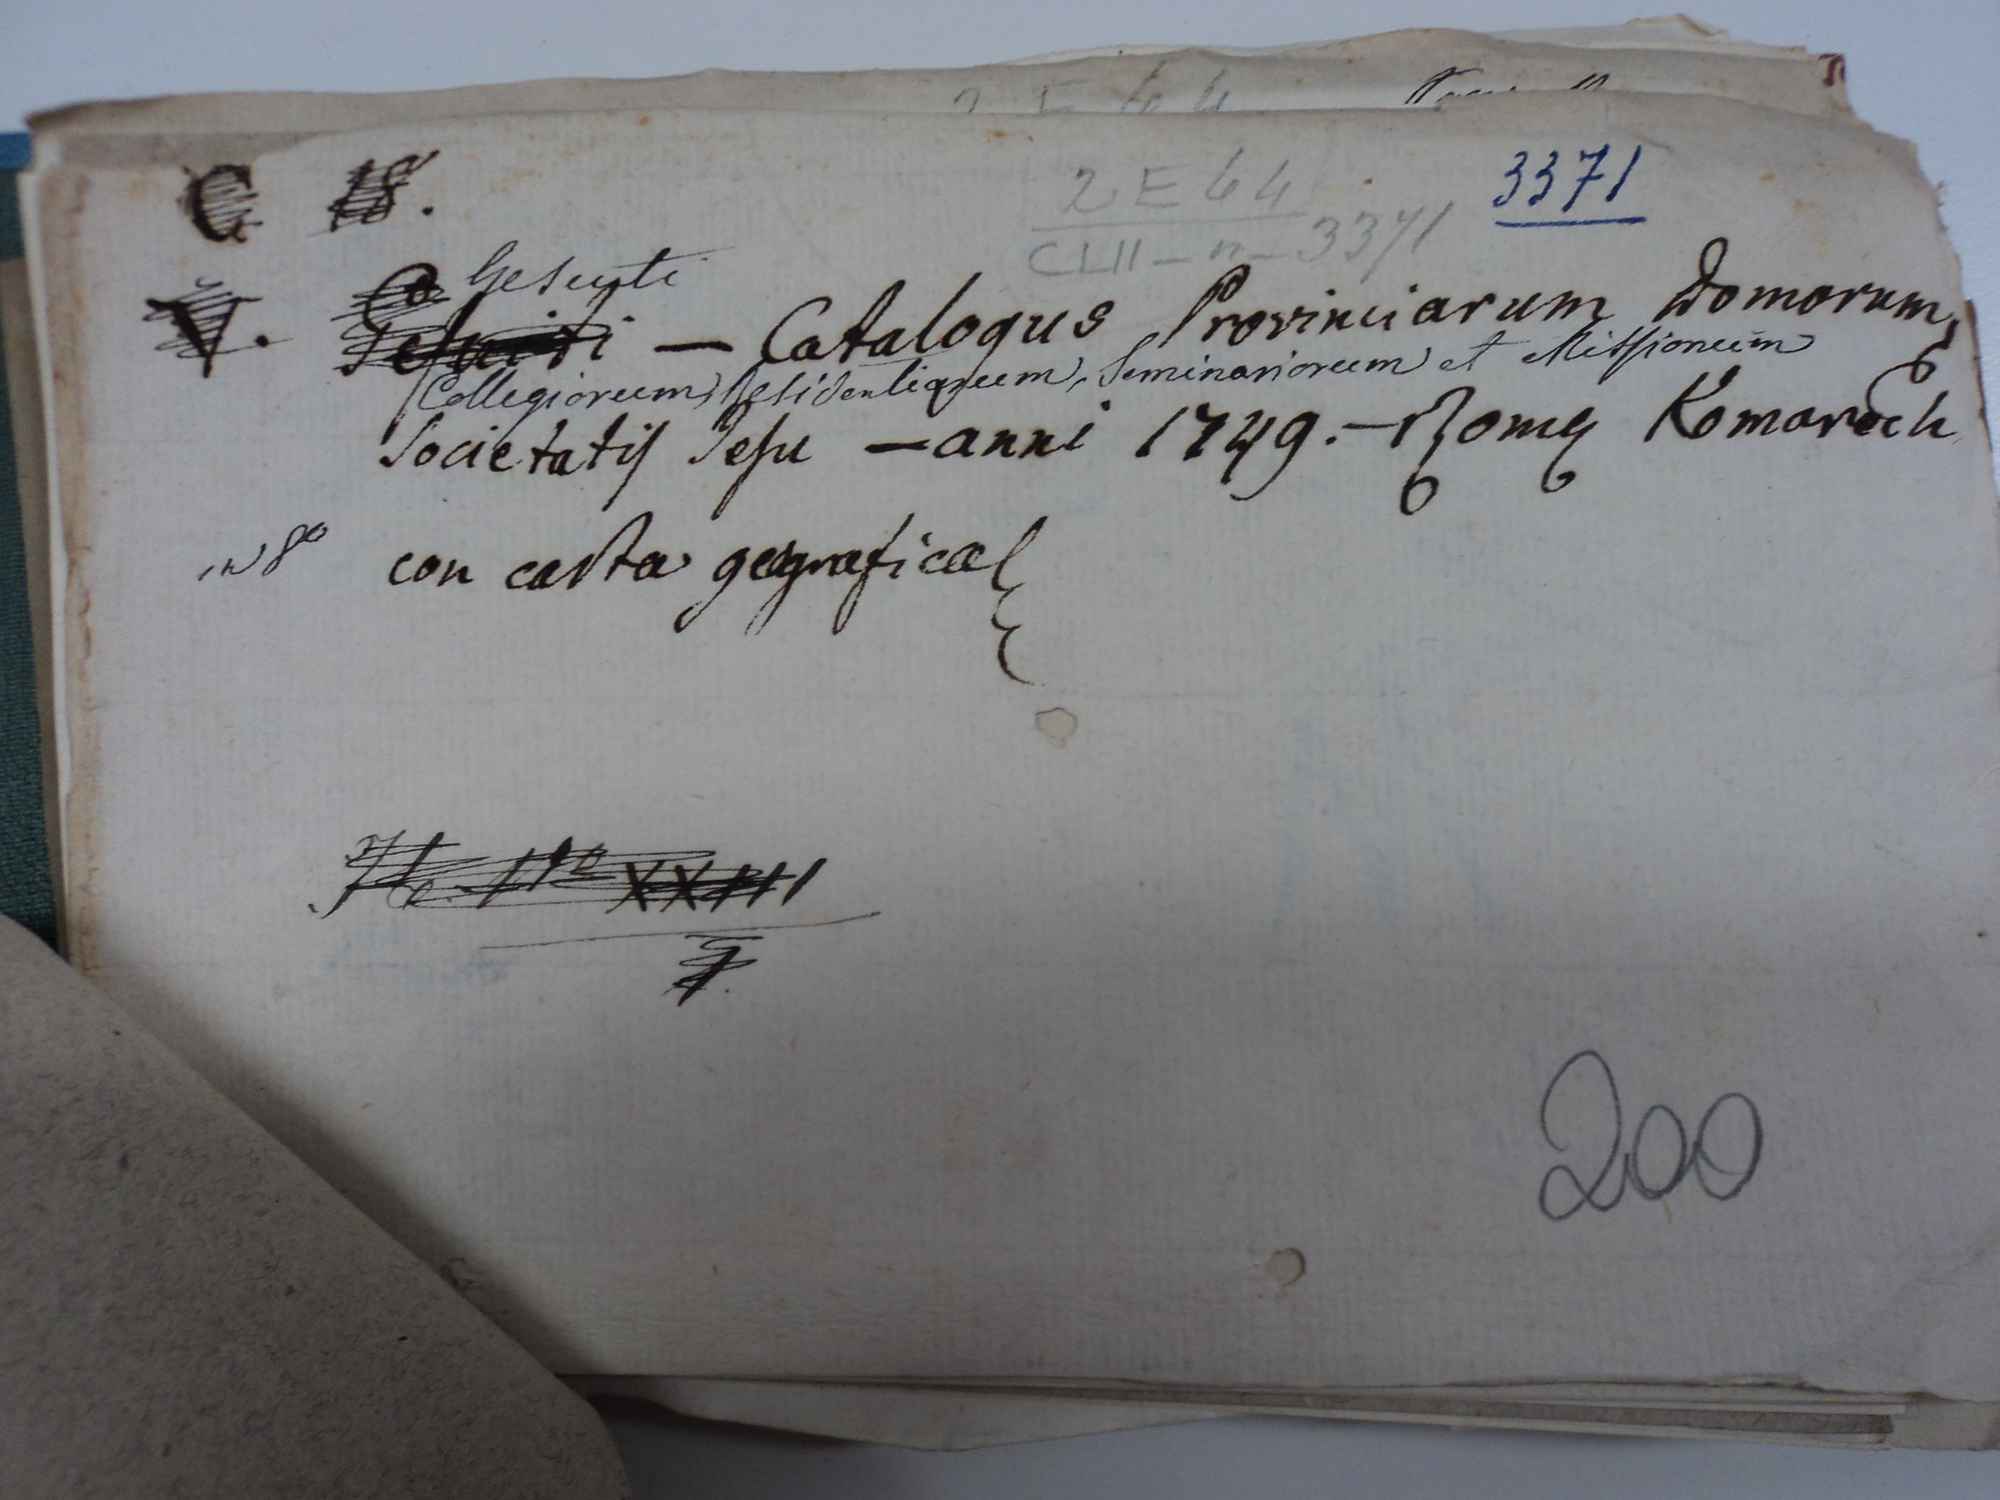 2 E 44
C 18.
2 E 44
3371
CLII - n - 3371
V. Gesuiti
Jesuiti — Catalogus Provinciarum Domorum,
Collegiorum, Residentiarum, Seminariorum et Missionum
Societatis Jesu — anni 1749. — Romę Komarech
in 8º con carta geografica
XXIII
7.
200